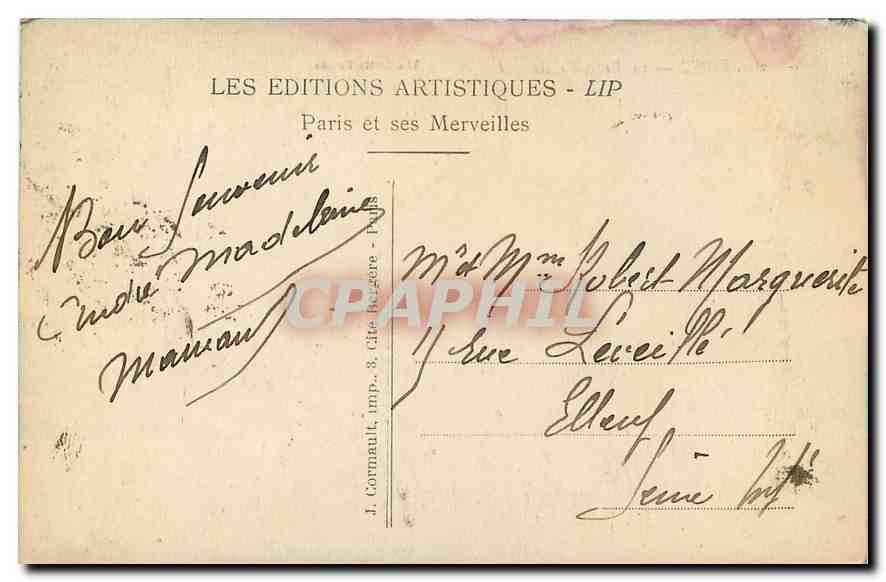 LES EDITIONS ARTISTIQUES - LIP
Paris et ses Merveilles
Bon Souvenir
André Madeleine
Maman
J. Cormault, imp., 3, Cité Bergère - Paris
Mr et Mme Robert Marguerite
11 Rue Léveillé
Elbeuf
Seine Infre
CPAPHIL